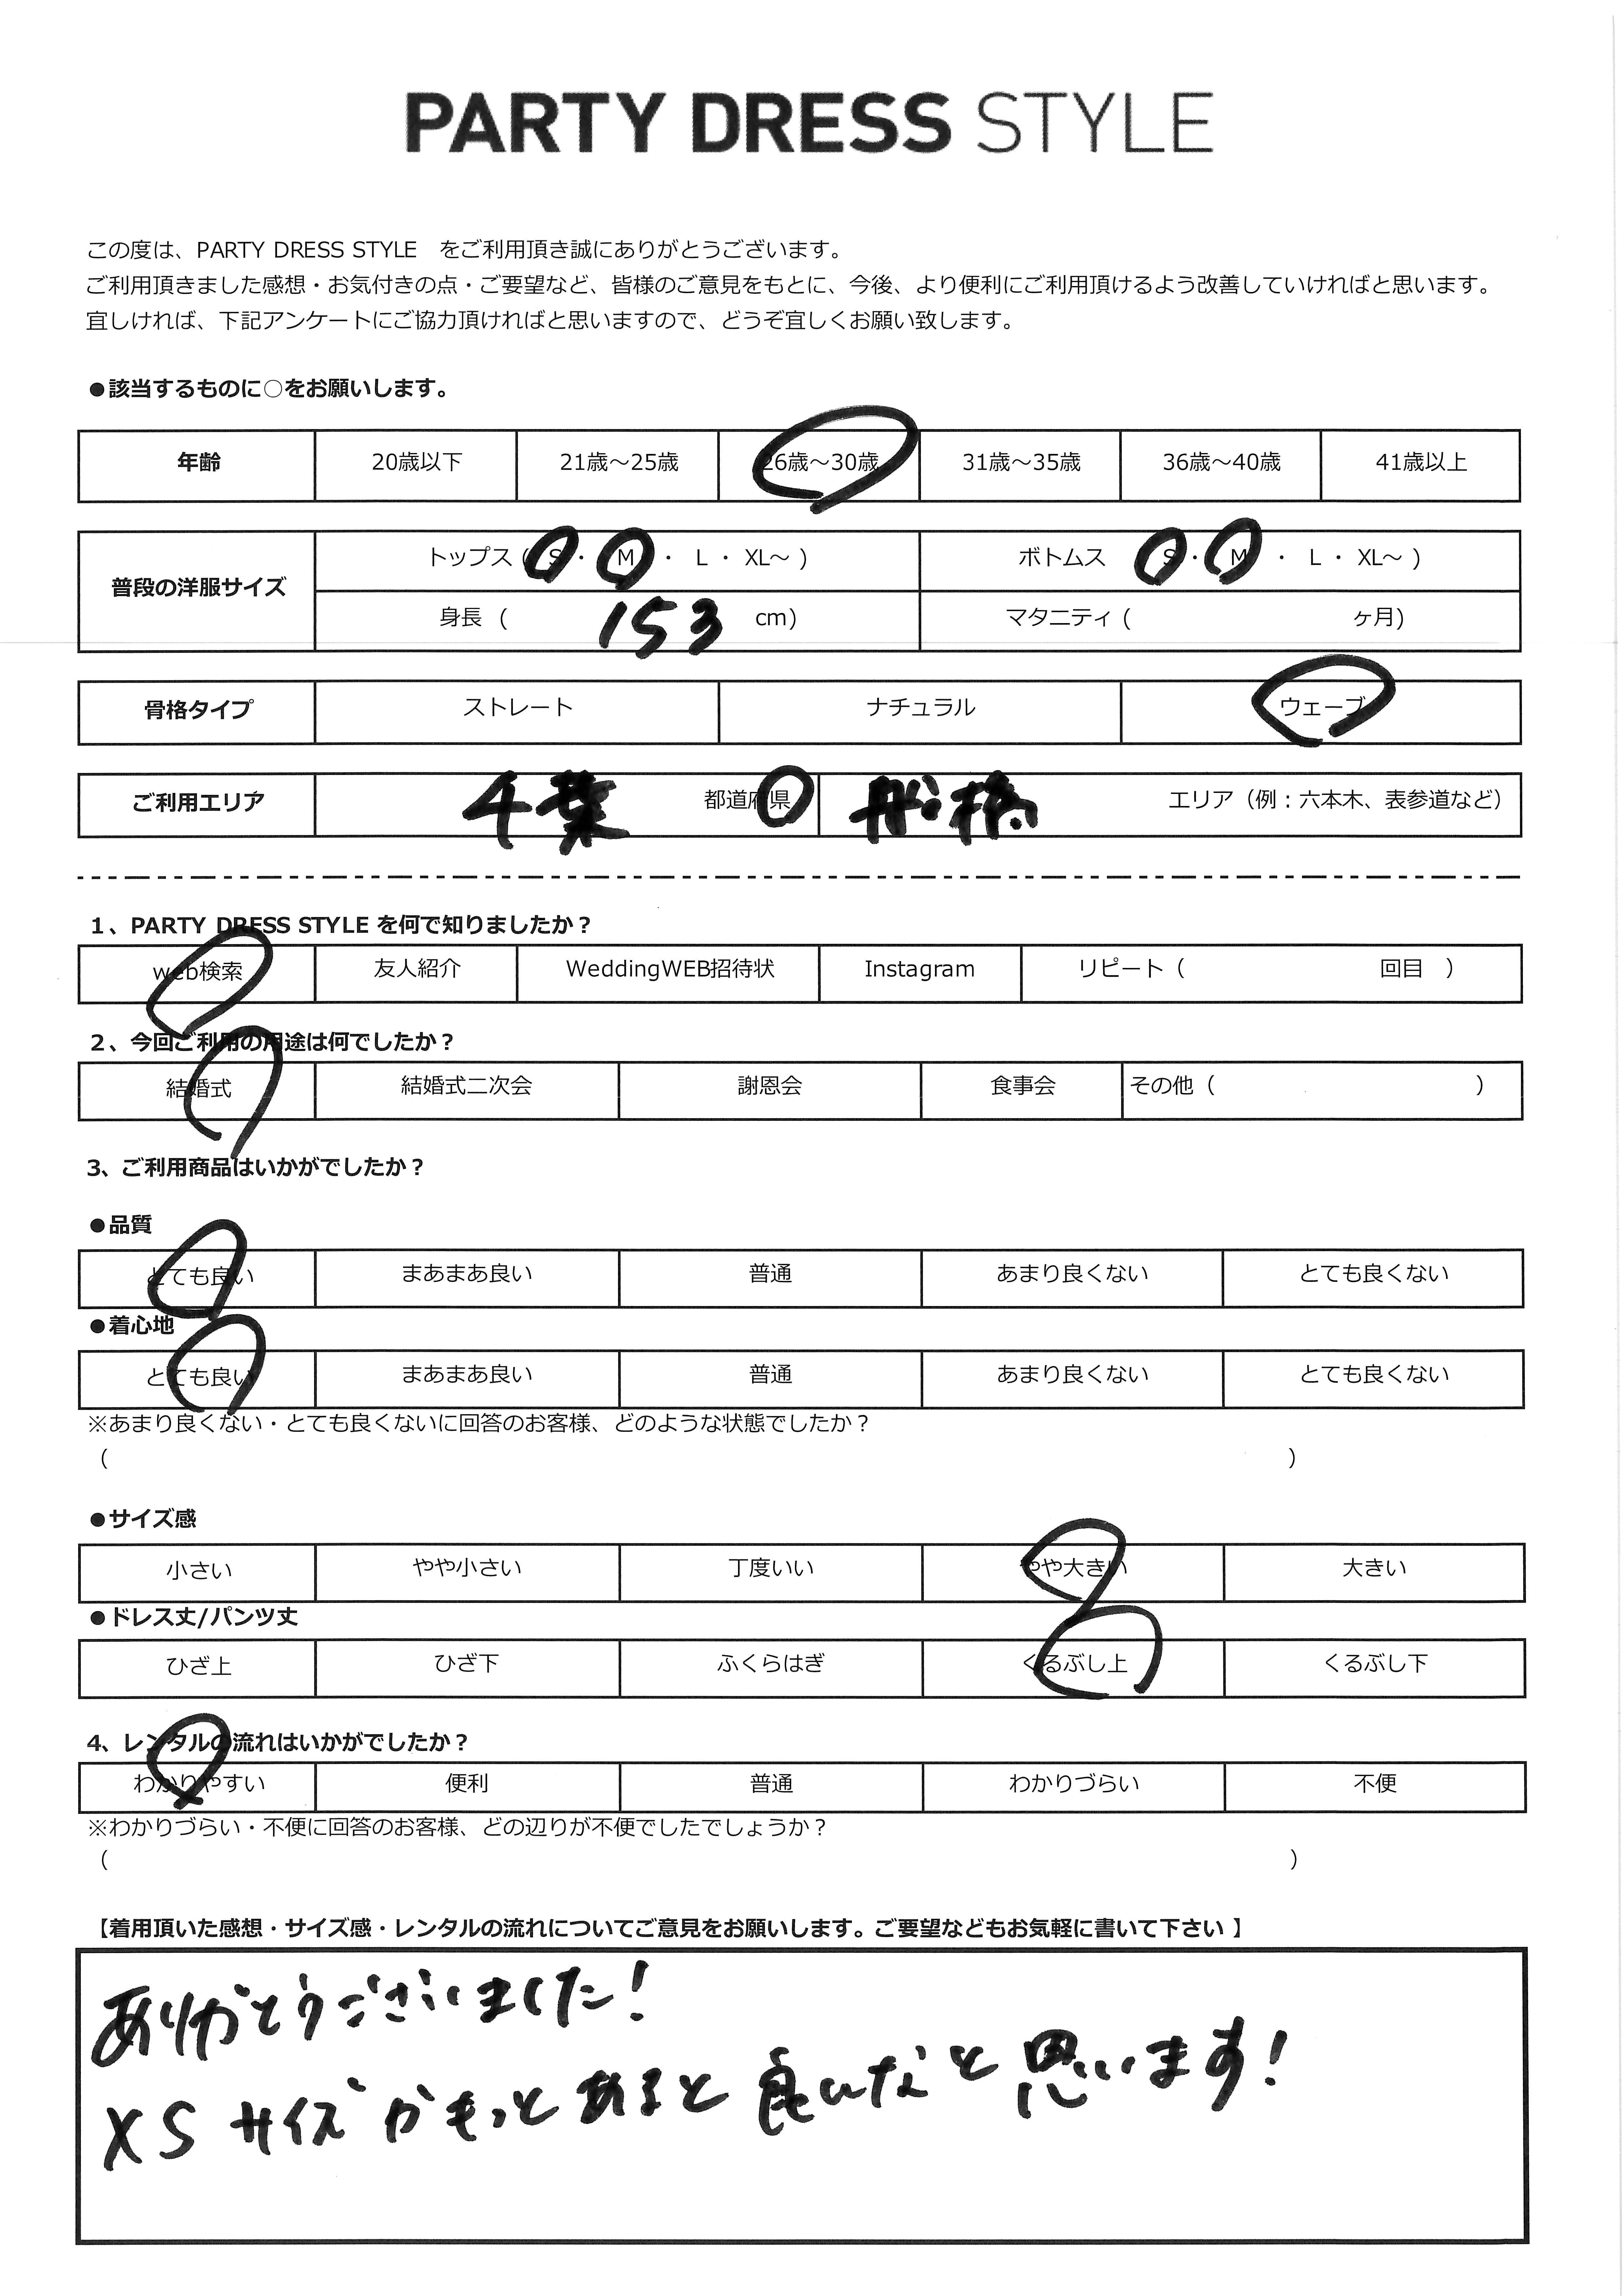 PARTY DRESS STYLE
この度は、PARTY DRESS STYLE　をご利用頂き誠にありがとうございます。
ご利用頂きました感想・お気付きの点・ご要望など、皆様のご意見をもとに、今後、より便利にご利用頂けるよう改善していければと思います。
宜しければ、下記アンケートにご協力頂ければと思いますので、どうぞ宜しくお願い致します。
●該当するものに○をお願いします。
年齢 20歳以下 21歳～25歳 26歳～30歳 31歳～35歳 36歳～40歳 41歳以上
普段の洋服サイズ トップス ( S ・ M ・ L ・ XL～ ) ボトムス ( S ・ M ・ L ・ XL～ )
身長 ( 153 cm) マタニティ ( ヶ月)
骨格タイプ ストレート ナチュラル ウェーブ
ご利用エリア 千葉 都道府県 船橋 エリア（例：六本木、表参道など）
1、PARTY DRESS STYLE を何で知りましたか？
web検索 友人紹介 WeddingWEB招待状 Instagram リピート（ 回目 ）
2、今回ご利用の用途は何でしたか？
結婚式 結婚式二次会 謝恩会 食事会 その他（ ）
3、ご利用商品はいかがでしたか？
●品質
とても良い まあまあ良い 普通 あまり良くない とても良くない
●着心地
とても良い まあまあ良い 普通 あまり良くない とても良くない
※あまり良くない・とても良くないに回答のお客様、どのような状態でしたか？
（ ）
●サイズ感
小さい やや小さい 丁度いい やや大きい 大きい
●ドレス丈/パンツ丈
ひざ上 ひざ下 ふくらはぎ くるぶし上 くるぶし下
4、レンタルの流れはいかがでしたか？
わかりやすい 便利 普通 わかりづらい 不便
※わかりづらい・不便に回答のお客様、どの辺りが不便でしたでしょうか？
（ ）
【着用頂いた感想・サイズ感・レンタルの流れについてご意見をお願いします。ご要望などもお気軽に書いて下さい 】
ありがとうございました！
XS サイズがもっとあると良いなと思います！